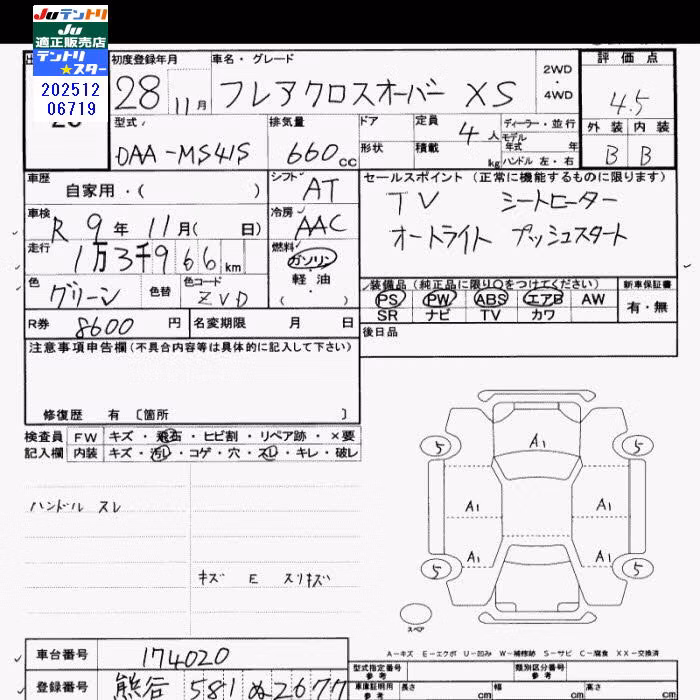 JUテントリ
JU
適正販売店
テントリ
スター
202512
06719
初度登録年月 車名・グレード 2WD・4WD 評価点
28 11月 フレアクロスオーバー XS 4.5
型式 排気量 ドア 定員 ディーラー・並行 外装 内装
形状 積載 モデル年式 年
DAA-MS41S 660cc 4人 kg ハンドル 左・右 B B
車歴 シフト セールスポイント (正常に機能するものに限ります)
自家用・( ) AT TV シートヒーター
車検 冷房
R 9年 11月( 日) AAC オートライト プッシュスタート
走行 燃料
1万3千966km ガソリン
軽油
・( )
色 色替 色コード 装備品(純正品に限り〇をつけてください) 新車保証書
グリーン ZVD PS PW ABS エアB AW 有・無
SR ナビ TV カワ
R券 8600円 名変期限 月 日 後日品
注意事項申告欄(不具合内容等は具体的に記入して下さい)
修復歴 有 〔箇所 〕
検査員 FW キズ・飛石・ヒビ割・リペア跡・×要
記入欄 内装 キズ・汚レ・コゲ・穴・スレ・キレ・破レ
ハンドル スレ
キズ E スリキズ
5 A1 5
A1 A1
A1 A1
5 5
スペア
A-キズ E-エクボ U-凹み W-補修跡 S-サビ C-腐食 XX-交換済
車台番号 174020
型式指定番号 参考 類別区分番号 参考
登録番号 熊谷 581 ぬ 2677
車庫証明用 参考 長さ cm 幅 cm 高さ cm